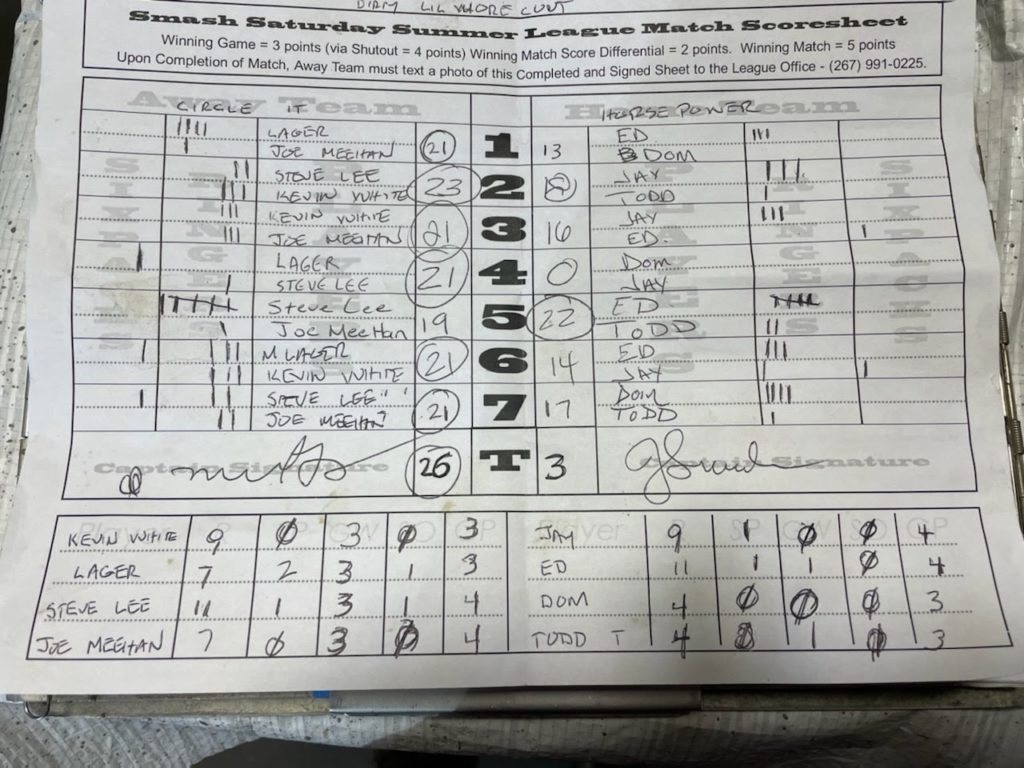 DIRTY LIL WHORE CUNT
Smash Saturday Summer League Match Scoresheet
Winning Game = 3 points (via Shutout = 4 points) Winning Match Score Differential = 2 points. Winning Match = 5 points
Upon Completion of Match, Away Team must text a photo of this Completed and Signed Sheet to the League Office - (267) 991-0225.
Away Team Home Team
CIRCLE IT HORSE POWER
LAGER ED
JOE MEEHAN 21 1 13 DOM
STEVE LEE JAY
KEVIN WHITE 23 2 TODD
KEVIN WHITE JAY
JOE MEEHAN 21 3 16 ED.
LAGER DOM
STEVE LEE 21 4 0 JAY
Steve Lee ED
Joe MeeHan 19 5 22 TODD
M LAGER ED
KEVIN WHITE 21 6 14 JAY
STEVE LEE DOM
JOE MEEHAN 21 7 17 TODD
SIXPACKS RINGERS PLAYERS PLAYERS RINGERS SIXPACKS
Captain Signature 26 T 3 Captain Signature
Player R SP GW SO GP Player R SP GW SO GP
KEVIN WHITE 9 0 3 0 3 JAY 9 1 0 0 4
LAGER 7 2 3 1 3 ED 11 1 1 0 4
STEVE LEE 11 1 3 1 4 DOM 4 0 0 0 3
JOE MEEHAN 7 0 3 0 4 TODD T 4 0 1 0 3